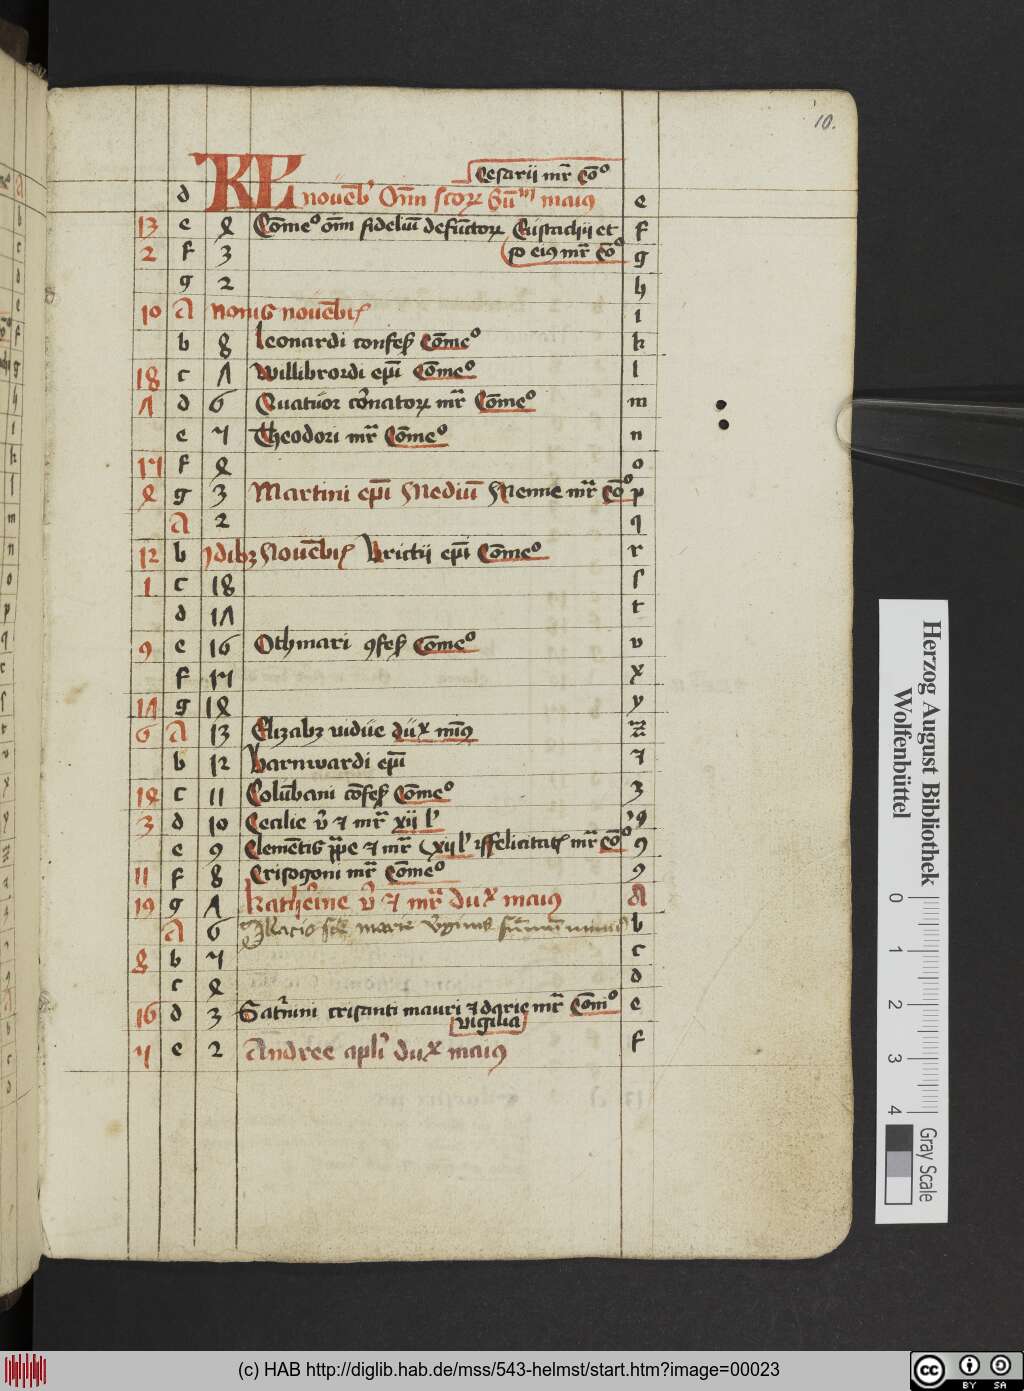 10.
Cesarii mr̄ Cōo
d KL nouēbʼ Om̄ scōꝝ Sūm maiꝰ e
13 e 4 Cōmeo om̄ fideliū defūctoꝝ Eustachij et f
2 f 3 so eiꝰ mr̄ Cōo g
g 2 h
10 A nonis nouēbrꝭ i
b 8 leonardi confeß Cōmeo k
18 c Λ willibrordi ep̄i Cōmeo l
Λ d 6 Quatuor cōnatoꝝ mr̄ Cōmeo m
e 5 Theodori mr̄ Cōmeo n
15 f 4 o
4 g 3 Martini ep̄i Mediū Menne mr̄ Cōo p
A 2 q
12 b Idibꝫ Nouēbrꝭ Brictij ep̄i Cōmeo r
1 c 18 ſ
d 1Λ t
9 e 16 Othmari ꝯfeß Cōmeo v
f 15 x
1Λ g 14 y
6 A 13 Elizabꝫ vidue dux minꝰ z
b 12 barnwardi ep̄i ⁊
14 c 11 Colūbani cōfeß Cōmeo 3
3 d 10 Cecilie v̄ ⁊ mr̄ xii lʼ ꝰ9
e 9 Clemētis pp̄e ⁊ mr̄ xii lʼ felicitatꝭ mr̄ Cōo 9
11 f 8 Crisogoni mr̄ Cōmeo 9
19 g Λ Katherine v̄ ⁊ mr̄ dux maiꝰ A
A 6 marie v̄ginis b
8 b 5 c
c 4 d
16 d 3 Satʼnini crisanti mauri ⁊ darie mr̄ Cōmo e
vigilia
5 e 2 Andree apl̄i dux maiꝰ f
Herzog August Bibliothek
Wolfenbüttel
0 1 2 3 4
Gray Scale
(c) HAB http://diglib.hab.de/mss/543-helmst/start.htm?image=00023
cc BY SA